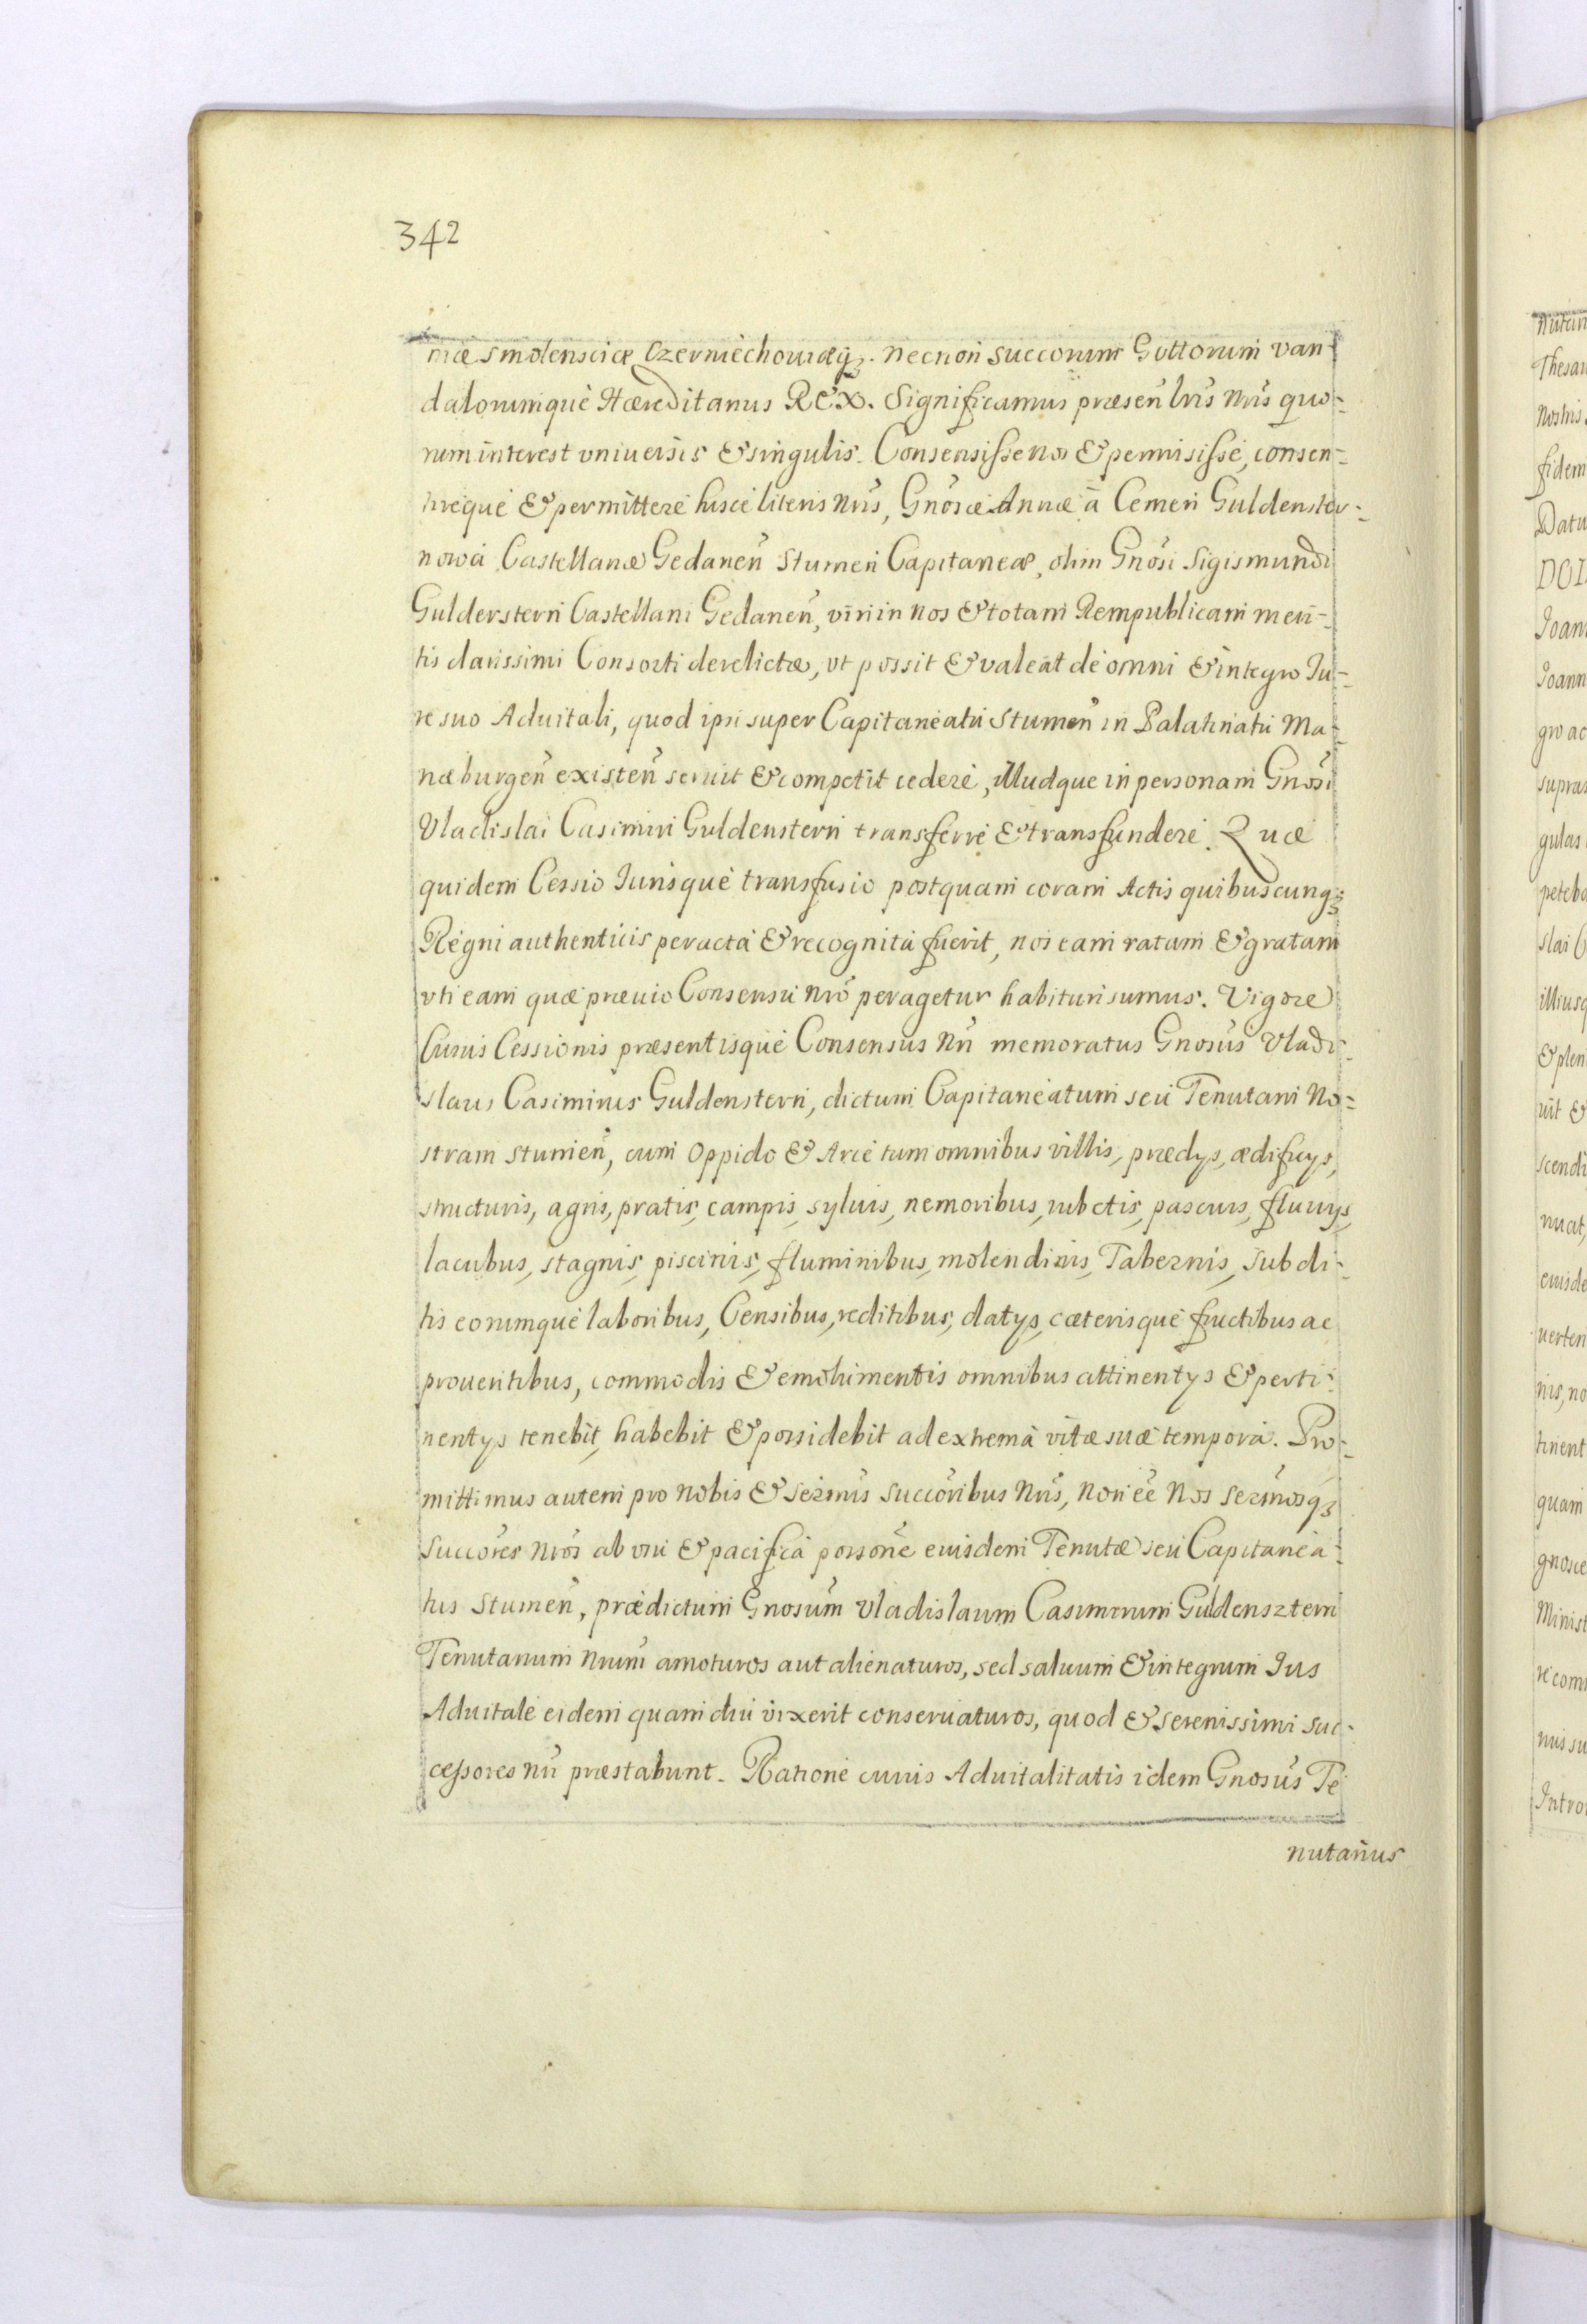 342
niæ Smolensciæ Czerniechouiæq₃. necnon Succorum Gottorum Van-
dalorumque Hæreditarius REX. Significamus præsen̄ lris nris quo=
rum interest vniuersis & singulis. Consensisse nos & permisisse, consen=
tireque & permittere hisce literis nris, Gnosæ Annæ à Cemen Guldenster=
nowa Castellanæ Gedanen̄ Stumen Capitaneæ, olim Gnosi Sigismundi
Gulderstern Castellani Gedanen̄, viri in nos & totam Rempublicam meri=
tis clarissimi Consorti derelictæ, vt possit & valeat de omni & integro Iu=
re suo Aduitali, quod ipsi super Capitaneatu Stumen̄ in Palatinatu Ma=
riæburgen̄ existen̄ seruit & competit cedere, illudque in personam Gnosi
Vladislai Casimiri Guldenstern transferre & transfundere. Quæ
quidem Cessio Iurisque transfusio postquam coram Actis quibuscunq₃
Regni authenticis peracta & recognita fuerit, nos eam ratam & gratam
vti eam quæ præuio Consensu nro peragetur habituri sumus. Vigore
Cuius Cessionis præsentisque Consensus nri memoratus Gnosus Vladi=
slaus Casimirus Guldenstern, dictum Capitaneatum seu Tenutam No=
stram Stumen̄, cum Oppido & Arce tum omnibus villis, prædys, ædificys,
structuris, agris, pratis, campis, syluis, nemoribus, rubetis, pascuis, fluuys,
lacubus, stagnis, piscinis, fluminibus, molendinis, Tabernis, Subdi=
tis eorumque laboribus, Censibus, reditibus, datys, cæterisque fructibus ac
prouentibus, commodis & emolumentis omnibus attinentys & perti=
nentys tenebit, habebit & possidebit ad extrema vitæ suæ tempora. Pro=
mittimus autem pro nobis & Sermis Succoribus nris, non ēē Nos Sermosq₃
Succores nros ab vsu & pacifica possone eiusdem Tenutæ seu Capitanea=
tus Stumen̄, prædictum Gnosum Vladislaum Casimirum Guldensztern
Tenutarium nrum amoturos aut alienaturos, sed saluum & integrum Ius
Aduitale eidem quam diu vixerit conseruaturos, quod & Serenissimi Suc=
cessores nri præstabunt. Ratione cuius Aduitalitatis idem Gnosus Te
nutarius